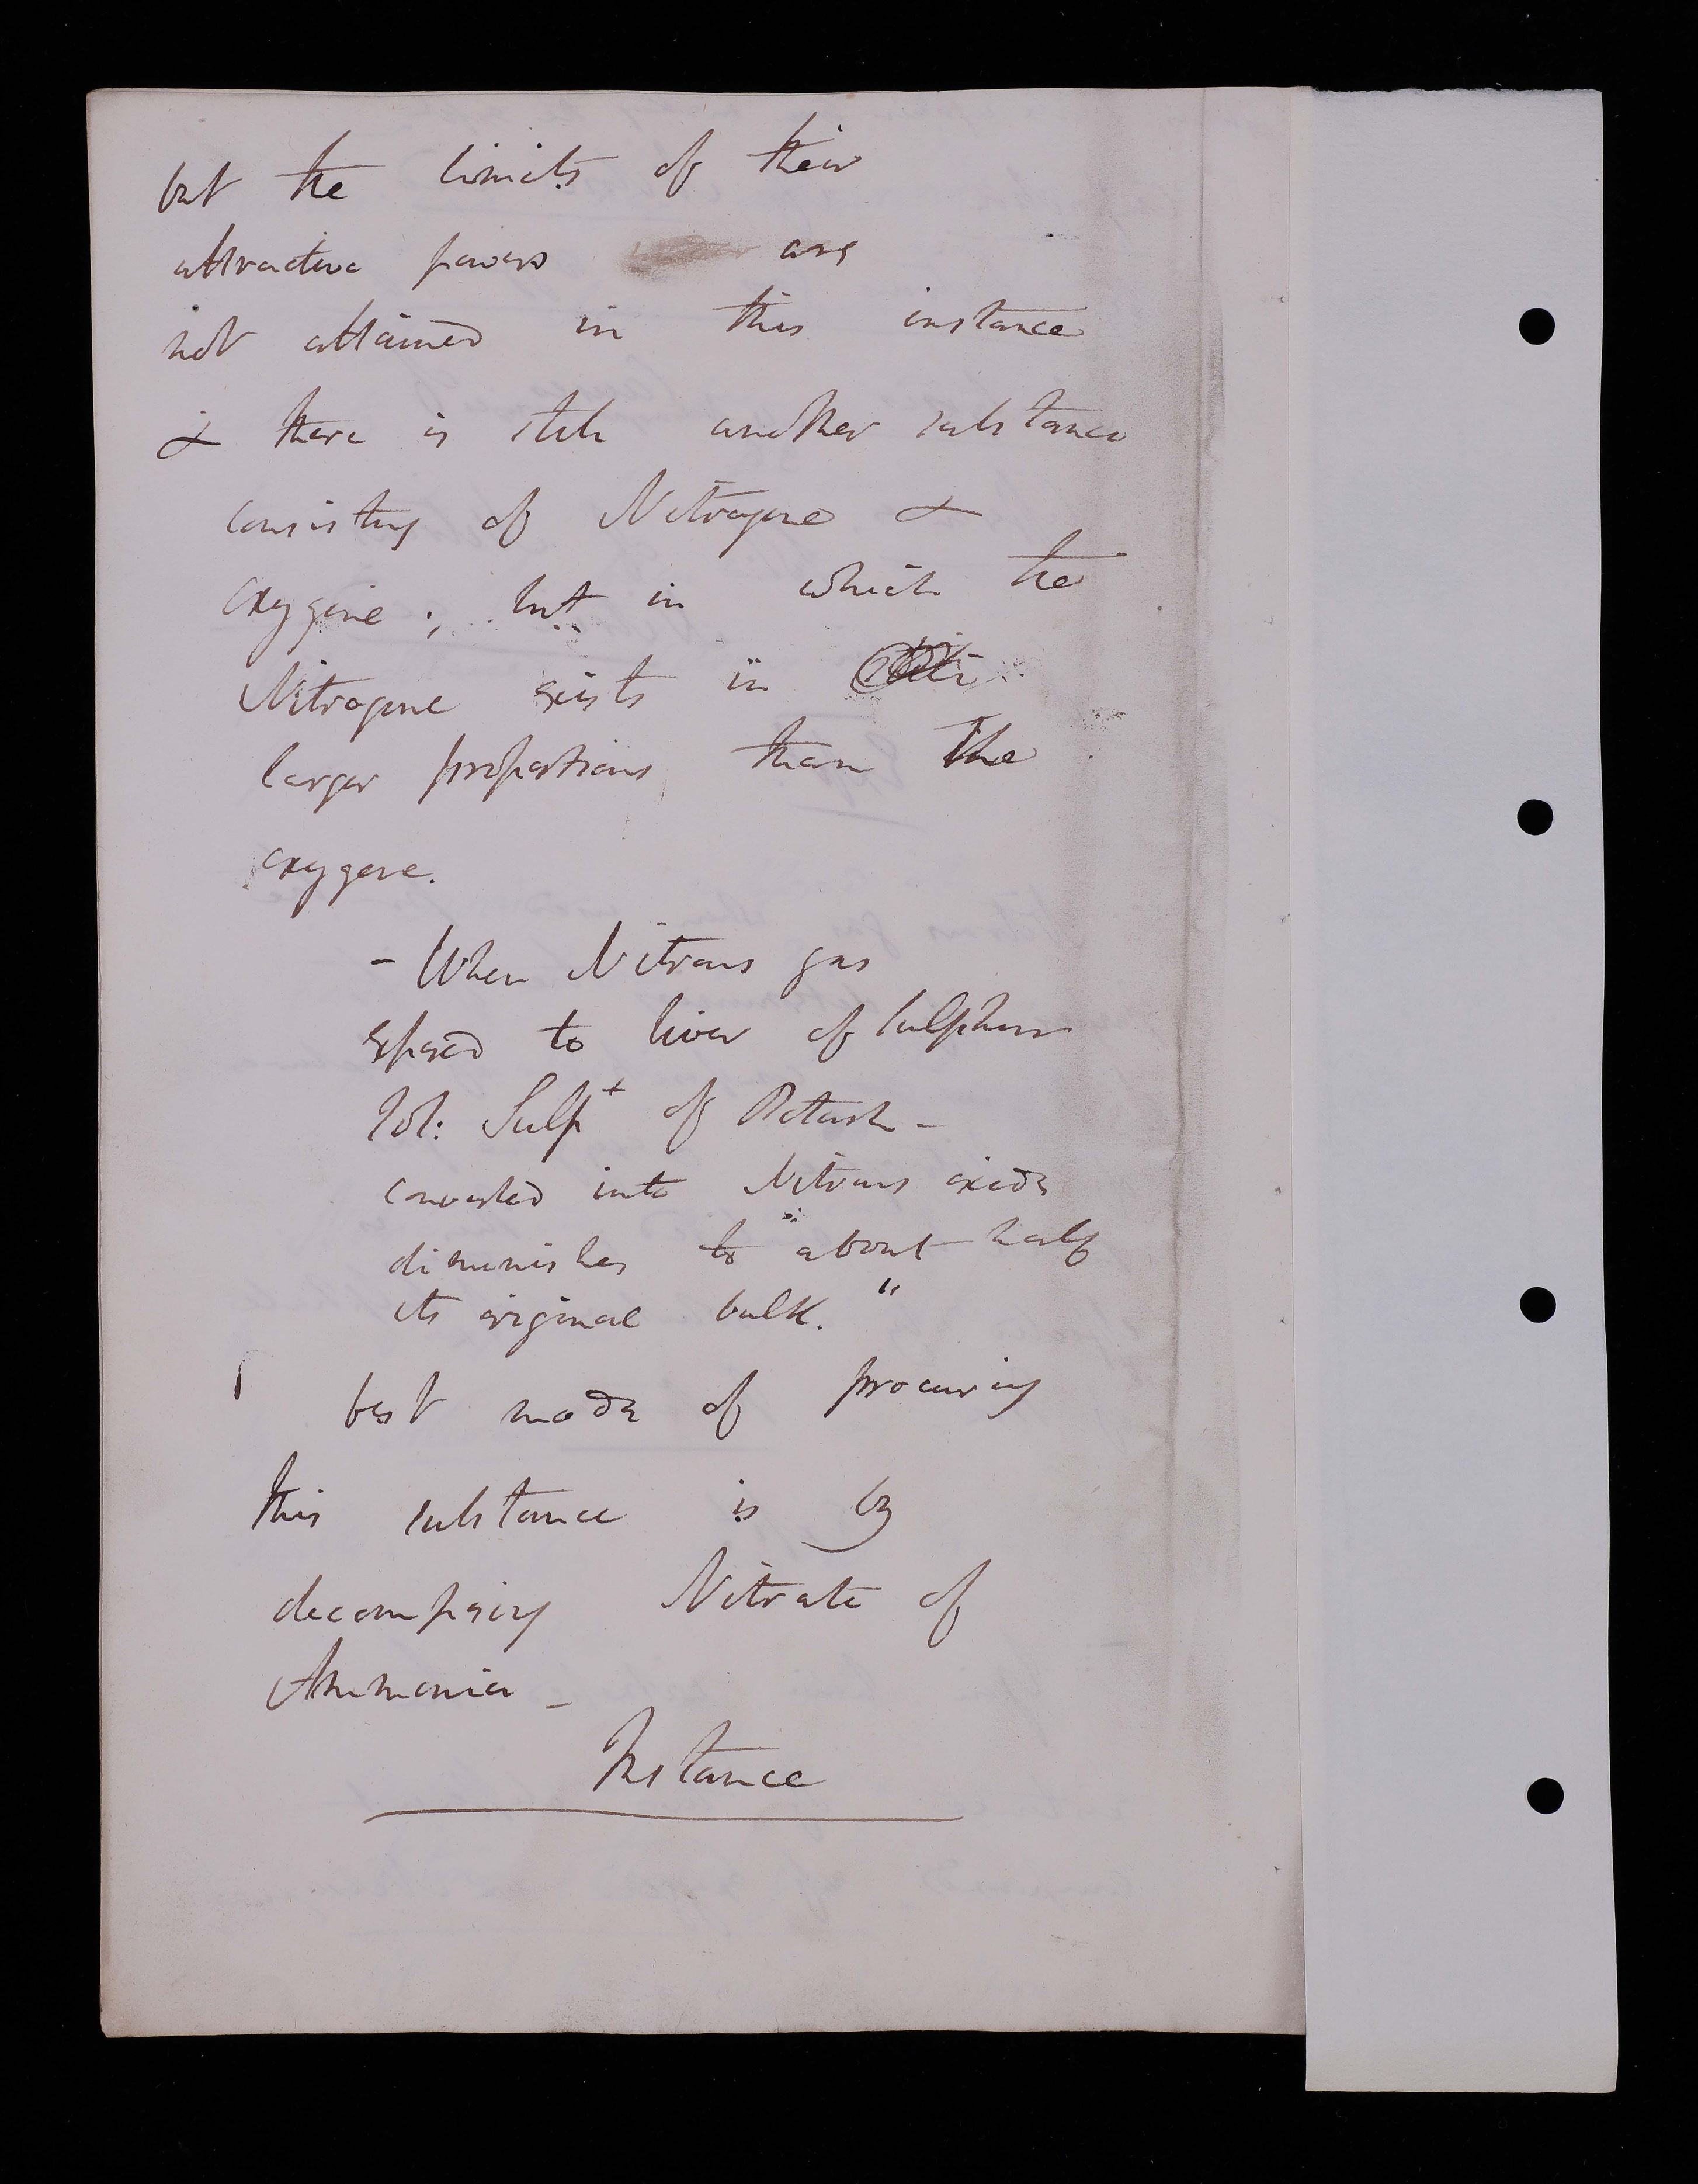 but the limits of their
attractive powers are
not attained in this instance
& there is still another substance
consisting of Nitrogene &
oxygene; but in which the
Nitrogene exists in
larger proportions than the
oxygene.
- When Nitrous gas
exposed to liver of sulphur
sol: Sulpt of Potash -
converted into Nitrous oxide
diminishes to "about half
its original bulk."
best mode of procuring
this substance is by
decomposing Nitrate of
Ammonia -
Instance